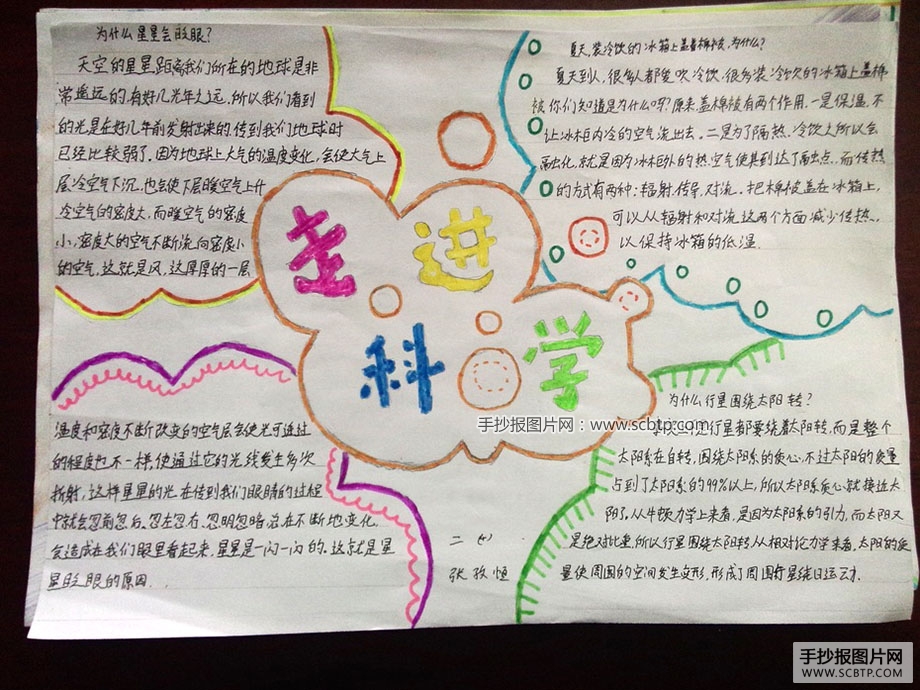 为什么星星会眨眼?
天空的星星距离我们所在的地球是非
常遥远的,有好几光年之远,所以我们看到
的光是在好几年前发射出来的,传到我们地球时
已经比较弱了。因为地球上大气的温度变化,会使大气上
层冷空气下沉,也会使下层暖空气上升
冷空气的密度大,而暖空气的密度
小,密度大的空气不断流向密度小
的空气,这就是风,这厚厚的一层
夏天,装冷饮的冰箱上盖着棉被,为什么?
夏天到人,很多人都爱吹冷饮,很多装冷饮的冰箱上盖棉
被你们知道是为什么呀?原来盖棉被有两个作用.一是保温,不
让冰柜内冷的空气流出去。二是为了隔热。冷饮之所以会
融化,就是因为冰柜外的热空气使其到达了融点。而传热
的方式有两种:辐射,传导,对流。把棉被盖在冰箱上,
可以从辐射和对流这两个方面减少传热,
以保持冰箱的低温.
走进
科学
手抄报图片网:www.scbtp.com
温度和密度不断改变的空气层会使光可通过
的程度也不一样,使通过它的光线发生多次
折射,这样星星的光,在传到我们眼睛的过程
中就会忽前忽后、忽左忽右、忽明忽暗总在不断地变化.
会造成在我们眼里看起来,星星是一闪一闪的。这就是星
星眨眼的原因.
为什么行星围绕太阳转?
行星都要绕着太阳转,而是整个
太阳系在自转,围绕太阳系的质心,不过太阳的质量
占到了太阳系的99%以上,所以太阳系质心就接近太
阳了。从牛顿力学上来看,是因为太阳系的引力,而太阳又
是绝对比重,所以行星围绕太阳转从相对论力学来看,太阳的质
量使周围的空间发生变形,形成了周围行星绕日运动.
手抄报图片网
WWW.SCBTP.COM